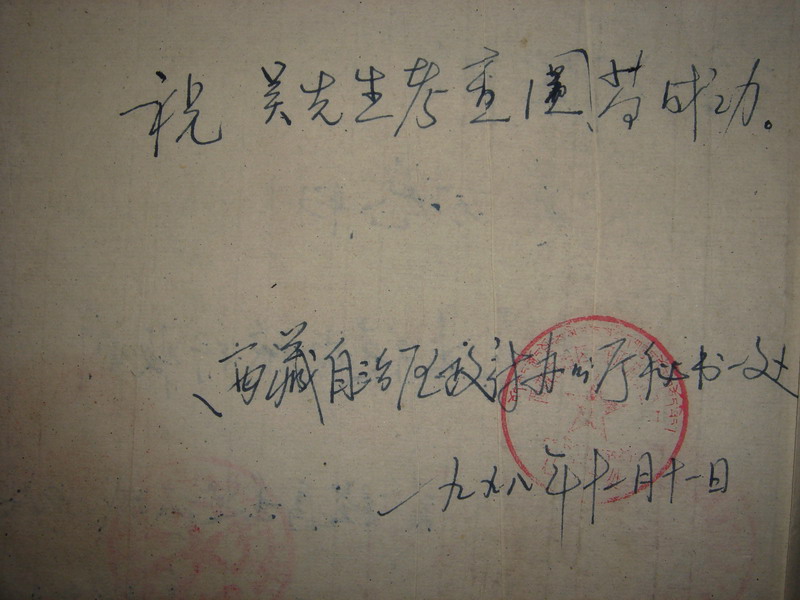 祝吴先生考查圆满成功。
西藏自治区政府办公厅秘书一处
一九九八年十一月十一日